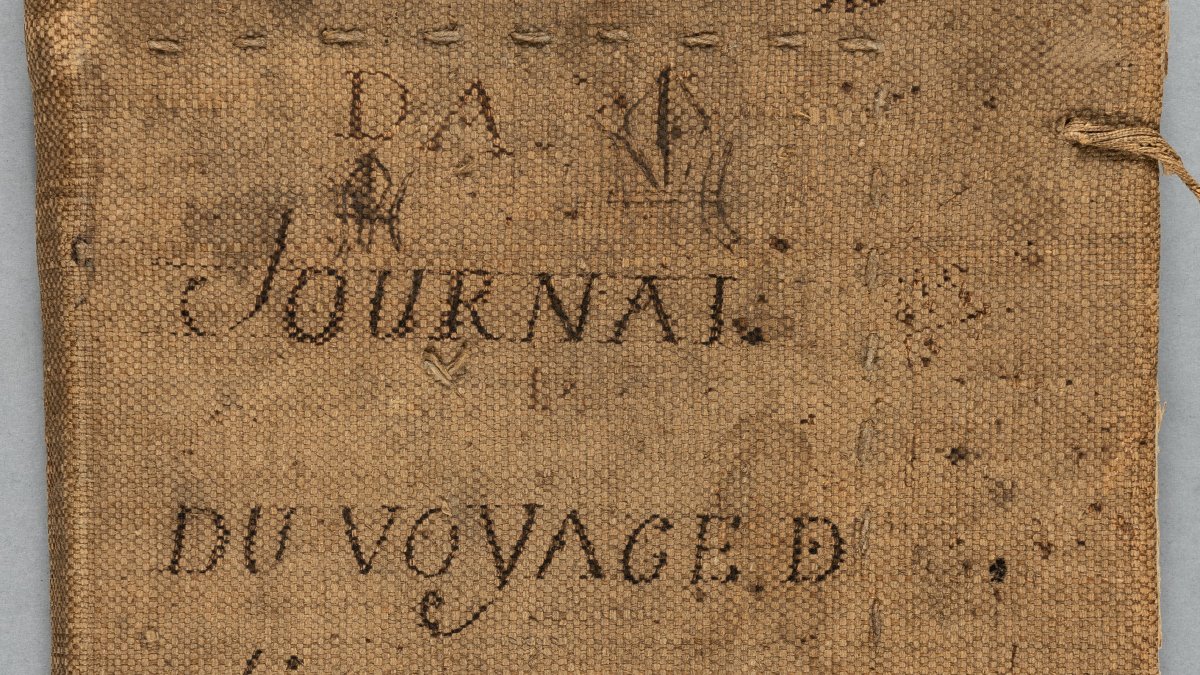 DA
JOURNAL
DU VOYAGE D